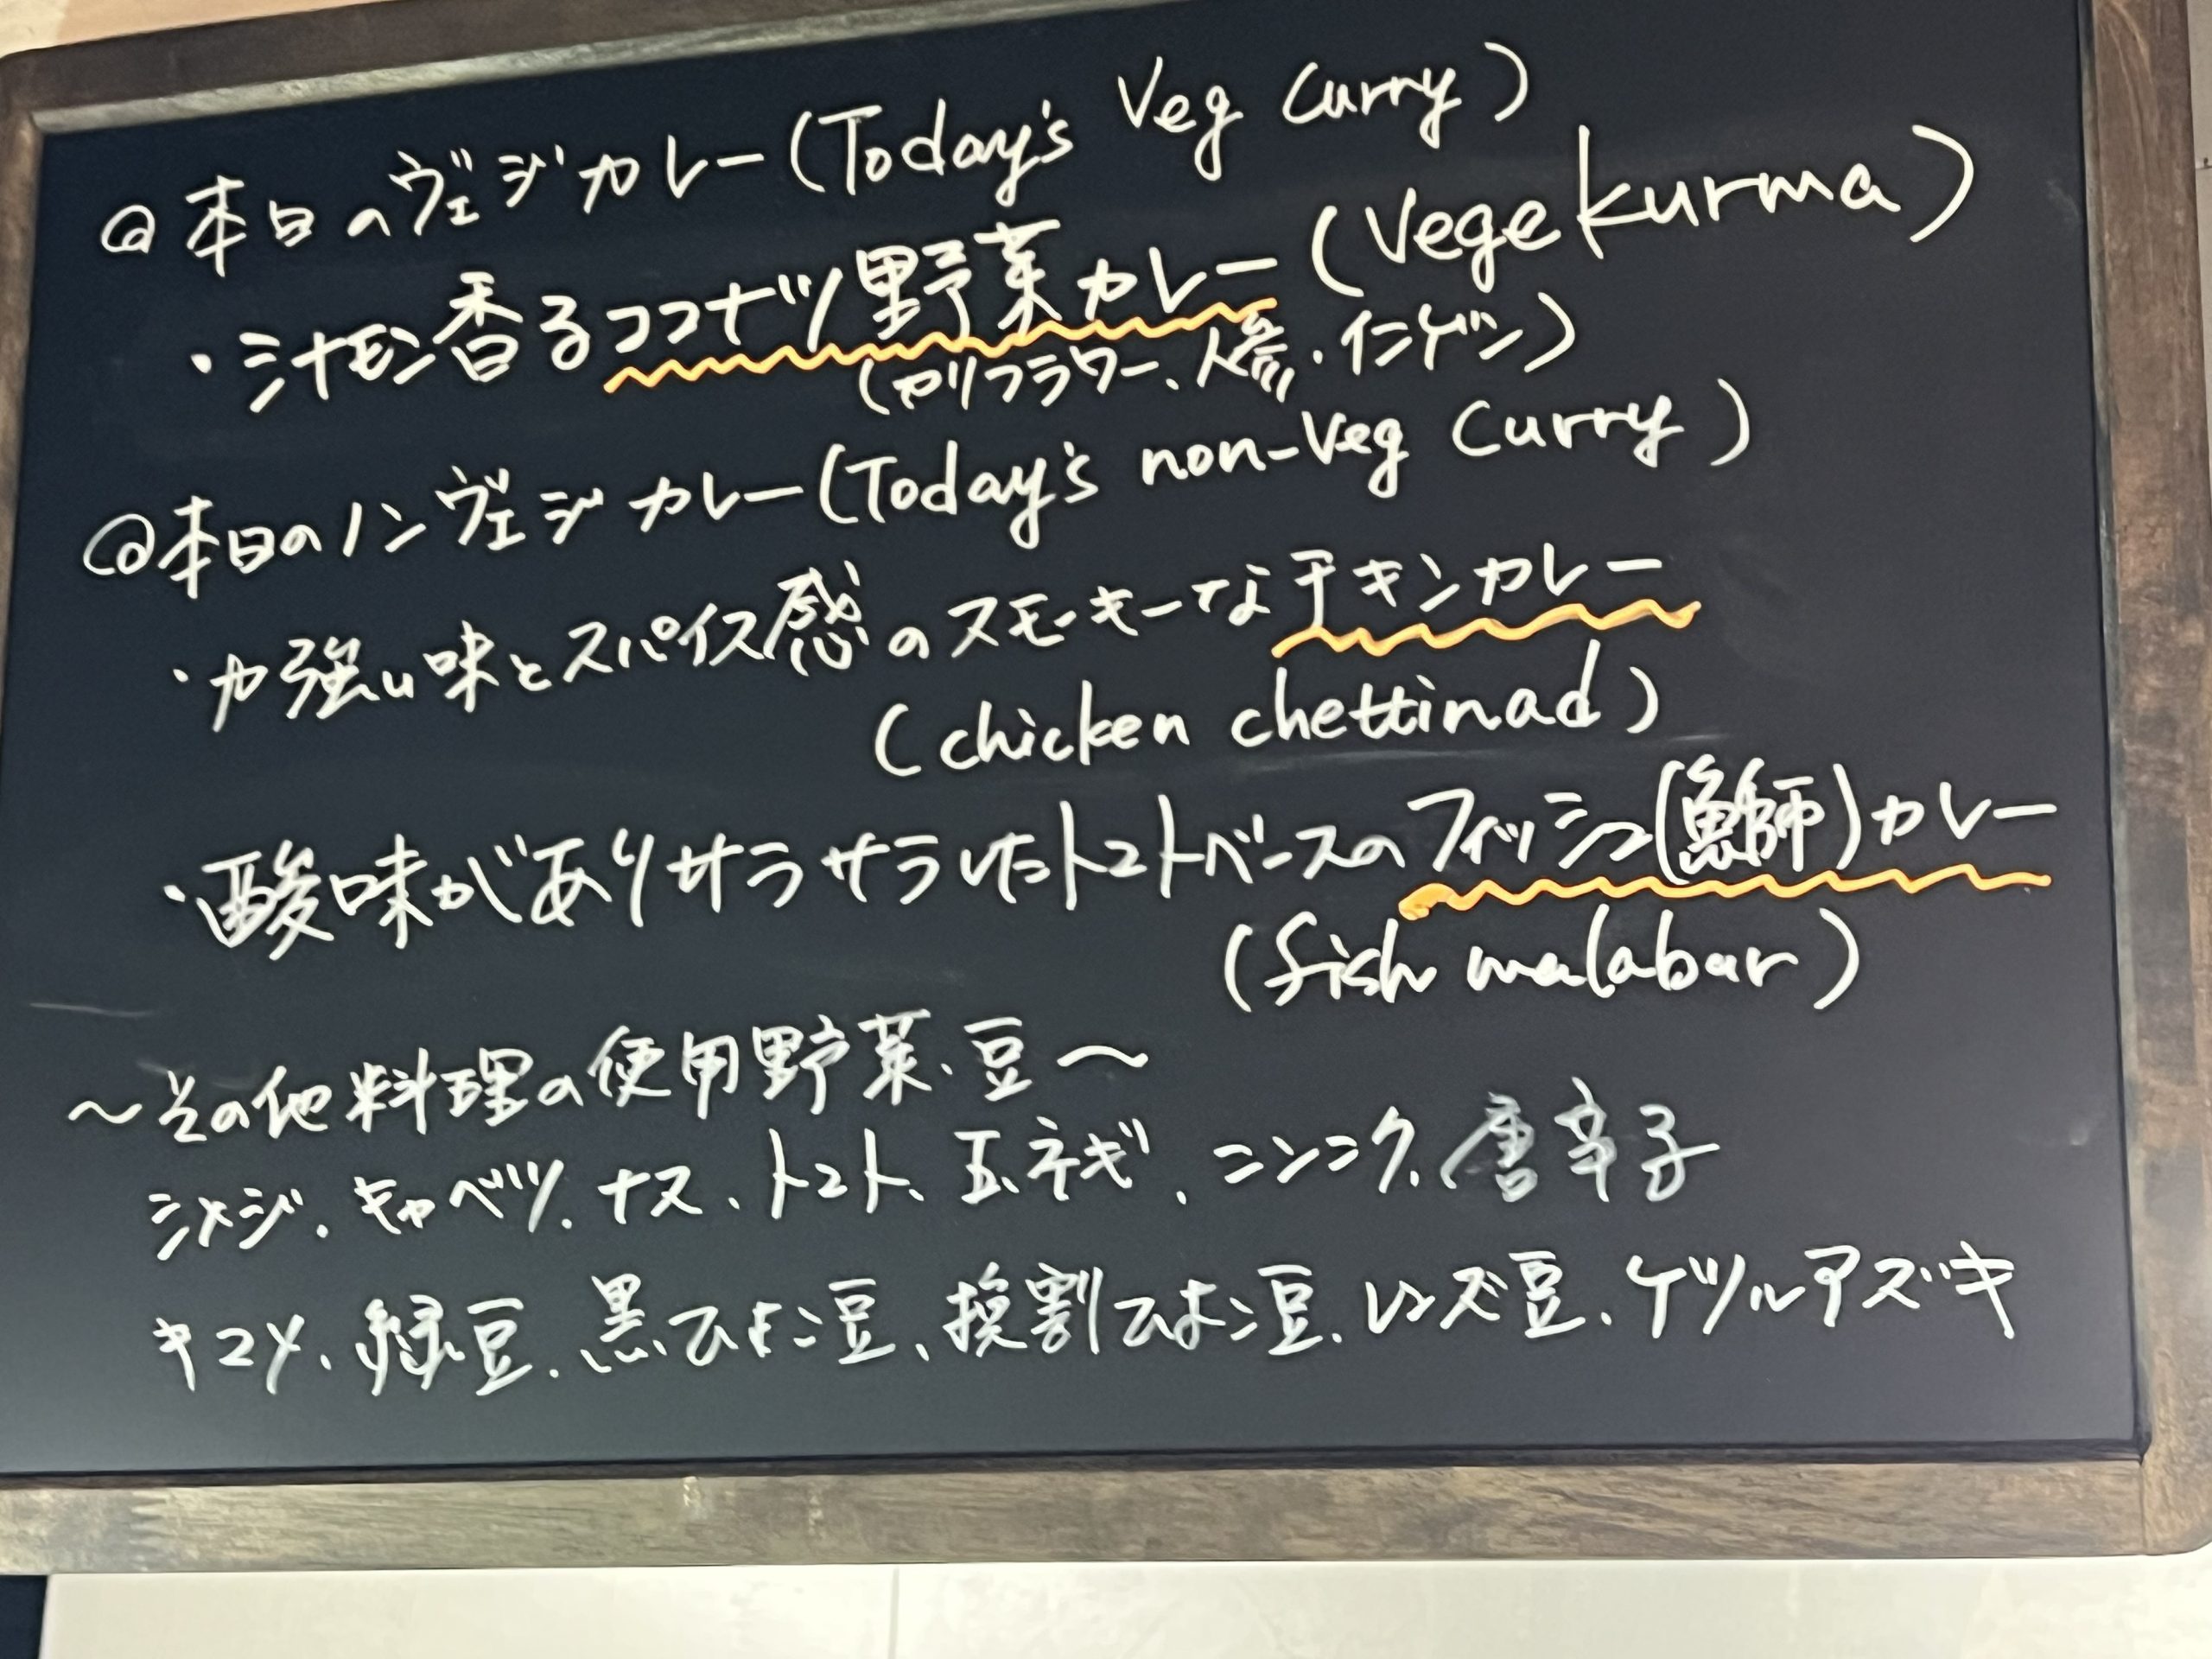 @本日のヴェジカレー(Today's Veg Curry)
・シナモン香るココナッツ野菜カレー(Vege kurma)
(カリフラワー、人参・インゲン)
@本日のノンヴェジカレー(Today's non-veg curry)
・力強い味とスパイス感のスモーキーなチキンカレー
(chicken chettinad)
・酸味がありサラサラしたトマトベースのフィッシュ(鰤)カレー
(fish malabar)
〜その他料理の使用野菜、豆〜
シメジ、キャベツ、ナス、トマト、玉ネギ、ニンニク、唐辛子
キマメ、緑豆、黒ひよこ豆、挽割ひよこ豆、レンズ豆、ケツルアズキ